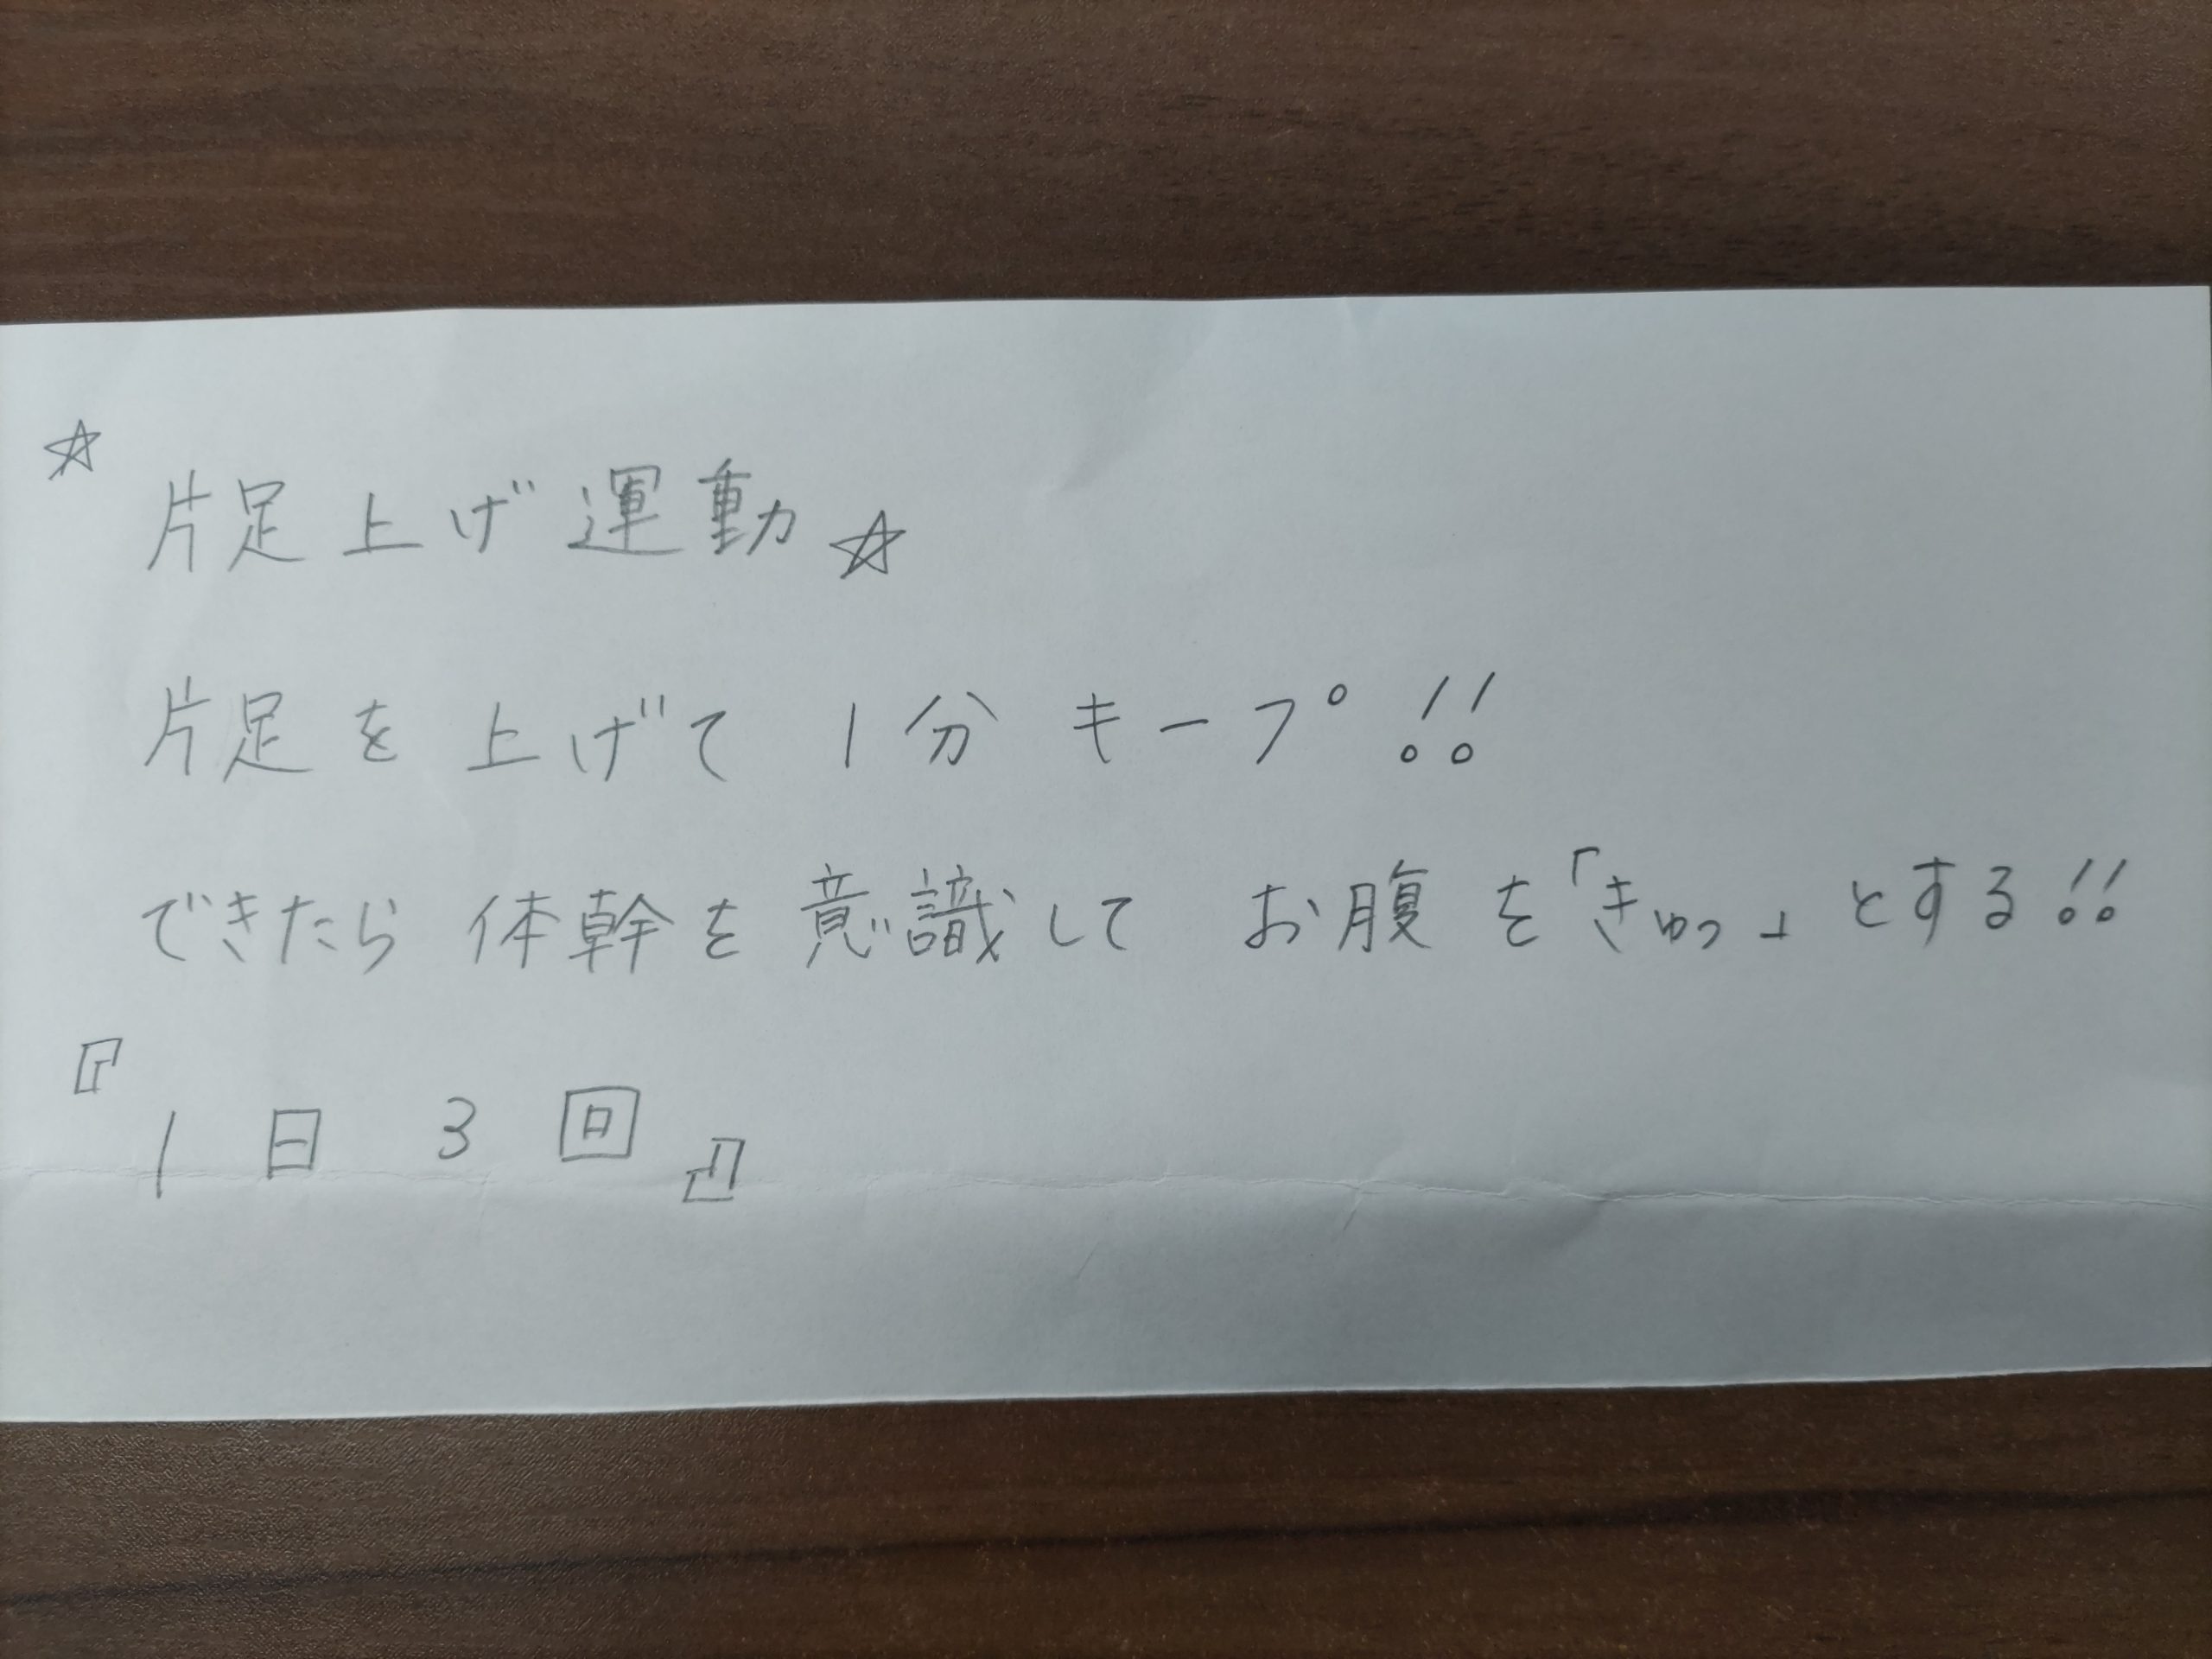 ☆片足上げ運動☆
片足を上げて 1分 キープ!!
できたら体幹を意識して お腹を「きゅっ」とする!!
『1日 3回』